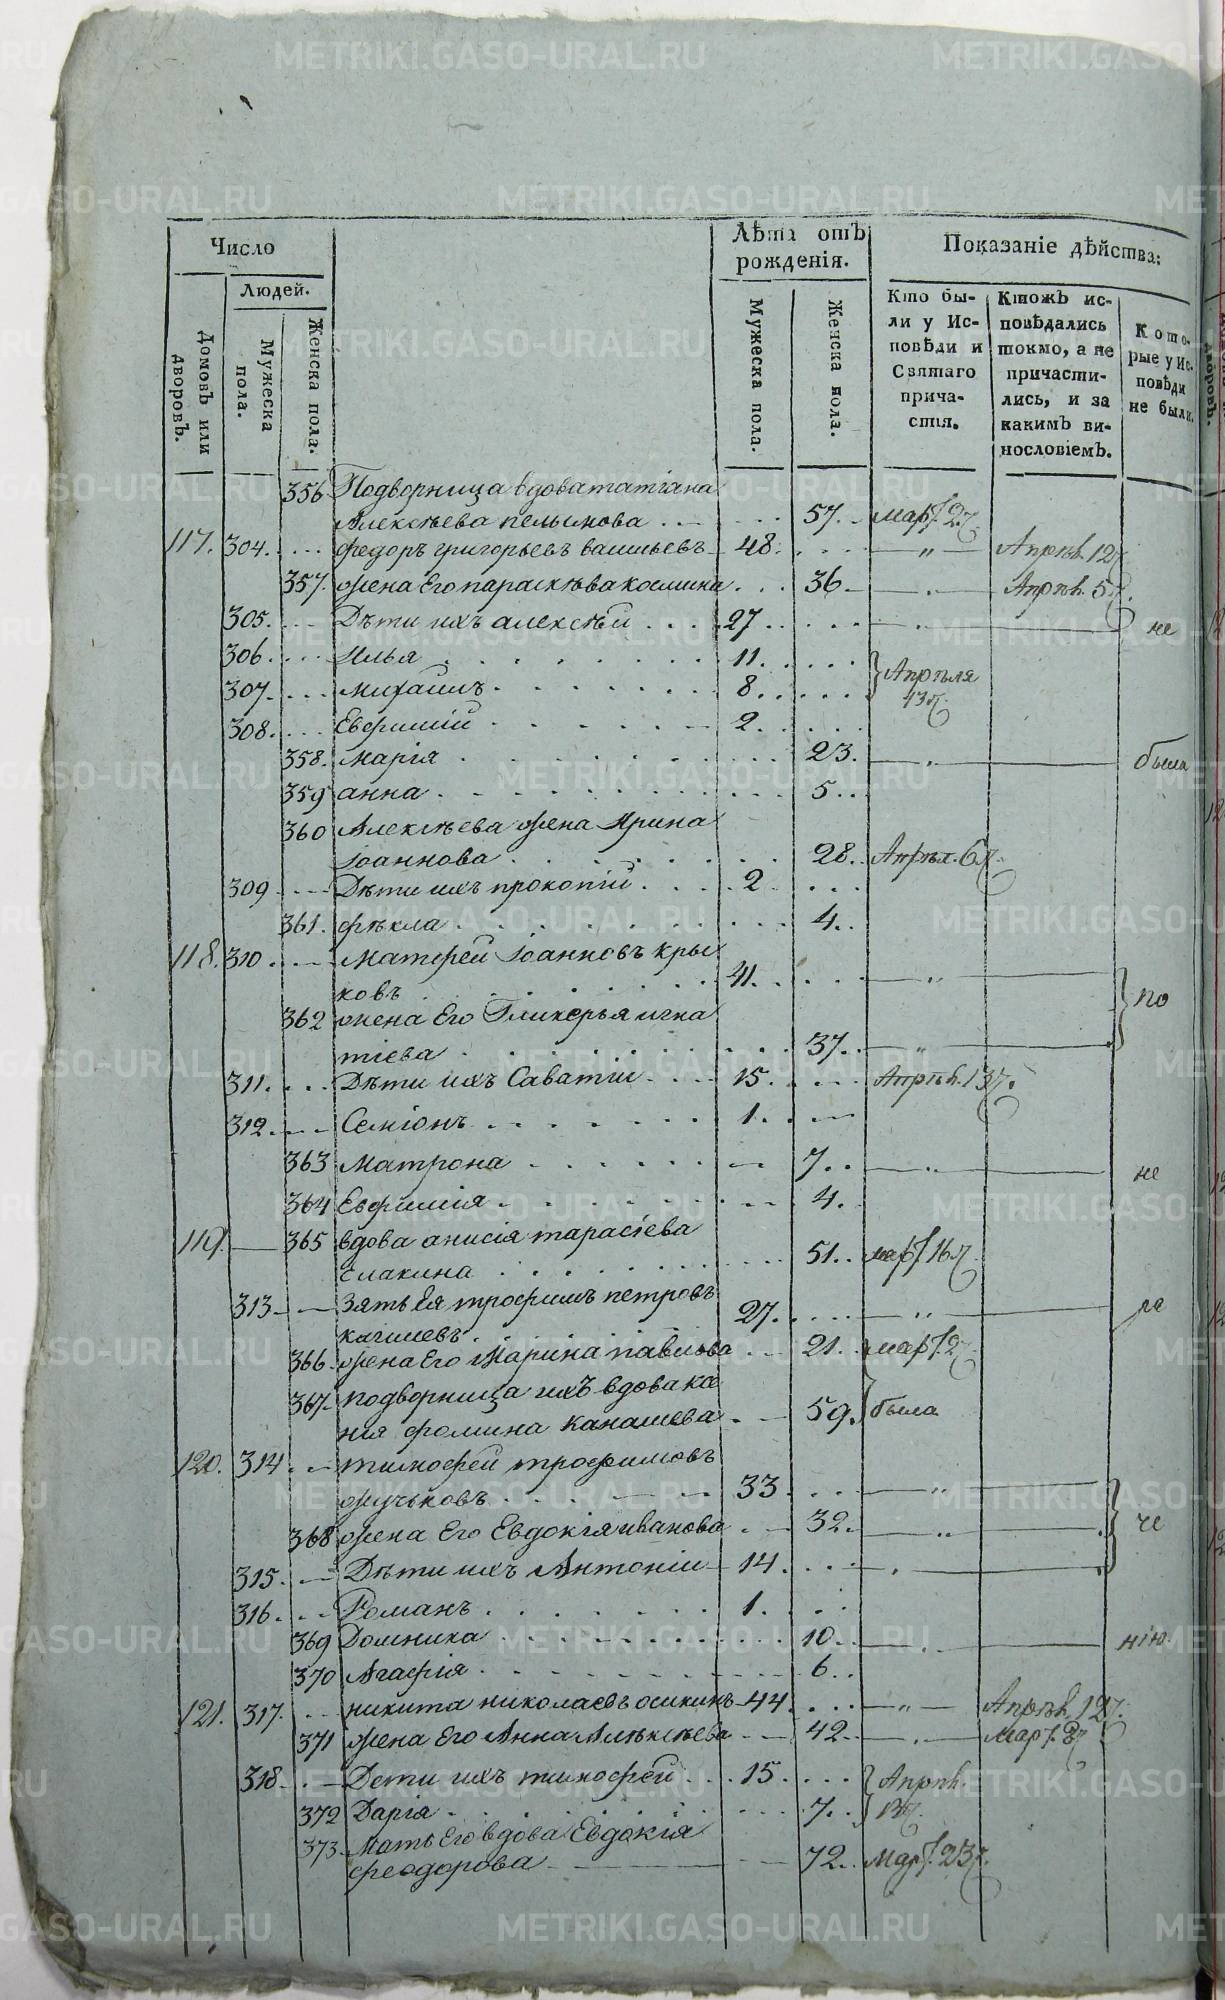 METRIKI.GASO-URAL.RU
Число
Людей.
Домовъ или дворовъ.
Мужеска пола.
Женска пола.
Лѣта отъ рожденія.
Мужеска пола.
Женска пола.
Показаніе дѣйства:
Кто были у Исповѣди и Святаго причастія.
Ктожъ исповѣдались токмо, а не причастились, и за какимъ винословіемъ.
Которые у Исповѣди не были.
356 Подворница вдова татіана
Алексѣева пелымова 57. Март. 27.
117. 304. федоръ григорьевъ васильевъ 48. " Апрѣл. 12
357. жена Его параскѣва космина 36 " Апрѣл. 5
305. Дѣти ихъ алексѣй 27 " не
306. Илья 11. Апрѣля
307. михаилъ 8. 13
308. Евфимій 2.
358. марія 23. " была
359 анна 5.
360 Алексѣева жена Ирина
Іоаннова 28. Апрѣл. 6
309 Дѣти ихъ прокопій 2
361. фѣкла 4.
118. 310 Матфей Іоанновъ кры
ковъ 41. " по
362 жена Его Гликерья игна
тіева 37. "
311. Дѣти ихъ Саватій 15. Апрѣл. 13
312. Семіонъ 1.
363 Матрона 7. " не
364 Евфимія 4.
119. 365 вдова анисія тарасіева
51. март. 16
313 Зять Ея трофимъ петровъ
27. "
366. жена Его Марина павлова 21. март. 2
367. подворница ихъ вдова ксе
нія фомина канашева 59. была
120. 314. тимофей трофимовъ
жучьковъ 33. "
368 жена Его Евдокія иванова 32. " че
315. Дѣти ихъ Антоній 14. "
316. Романъ 1.
369 Домника 10. " нію.
370 Агафія 6.
121. 317. никита николаевъ осикинъ 44. " Апрѣл. 12
371 жена Его Анна Алѣксѣева 42. " Март. 2
318. Дети ихъ тимофей 15. Апрѣл.
372 Дарія 7. 13
373. Мать Его вдова Евдокія
феодорова 72. Март. 23